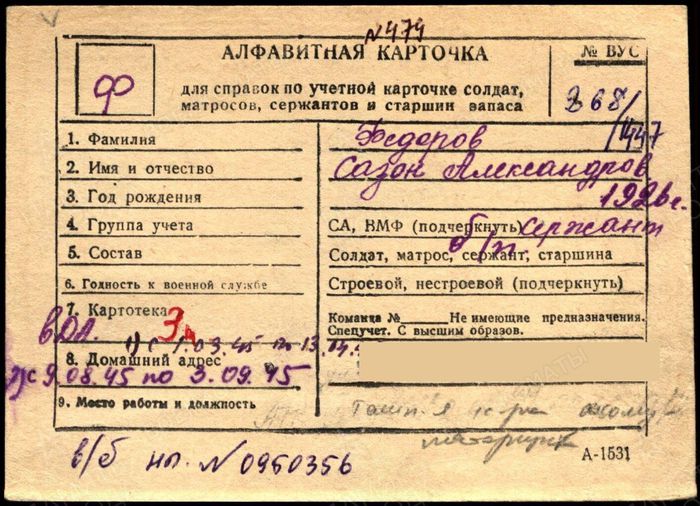 N 474
АЛФАВИТНАЯ КАРТОЧКА
№ ВУС
Ф
для справок по учетной карточке солдат,
матросов, сержантов и старшин запаса
268/
1447
1. Фамилия
Федоров
2. Имя и отчество
Сазон Александров
3. Год рождения
1926 г.
4. Группа учета
СА, ВМФ (подчеркнуть) сержант
5. Состав
Солдат, матрос, сержант, старшина
б/п
6. Годность к военной службе
Строевой, нестроевой (подчеркнуть)
7. Картотека
Команда № Не имеющие предназначения.
Спецучет. С высшим образов.
1) с 1.03.45 по 13.04.
8. Домашний адрес
2) с 9.08.45 по 3.09.45
9. Место работы и должность
в/б нп. N 0950356
А-1531